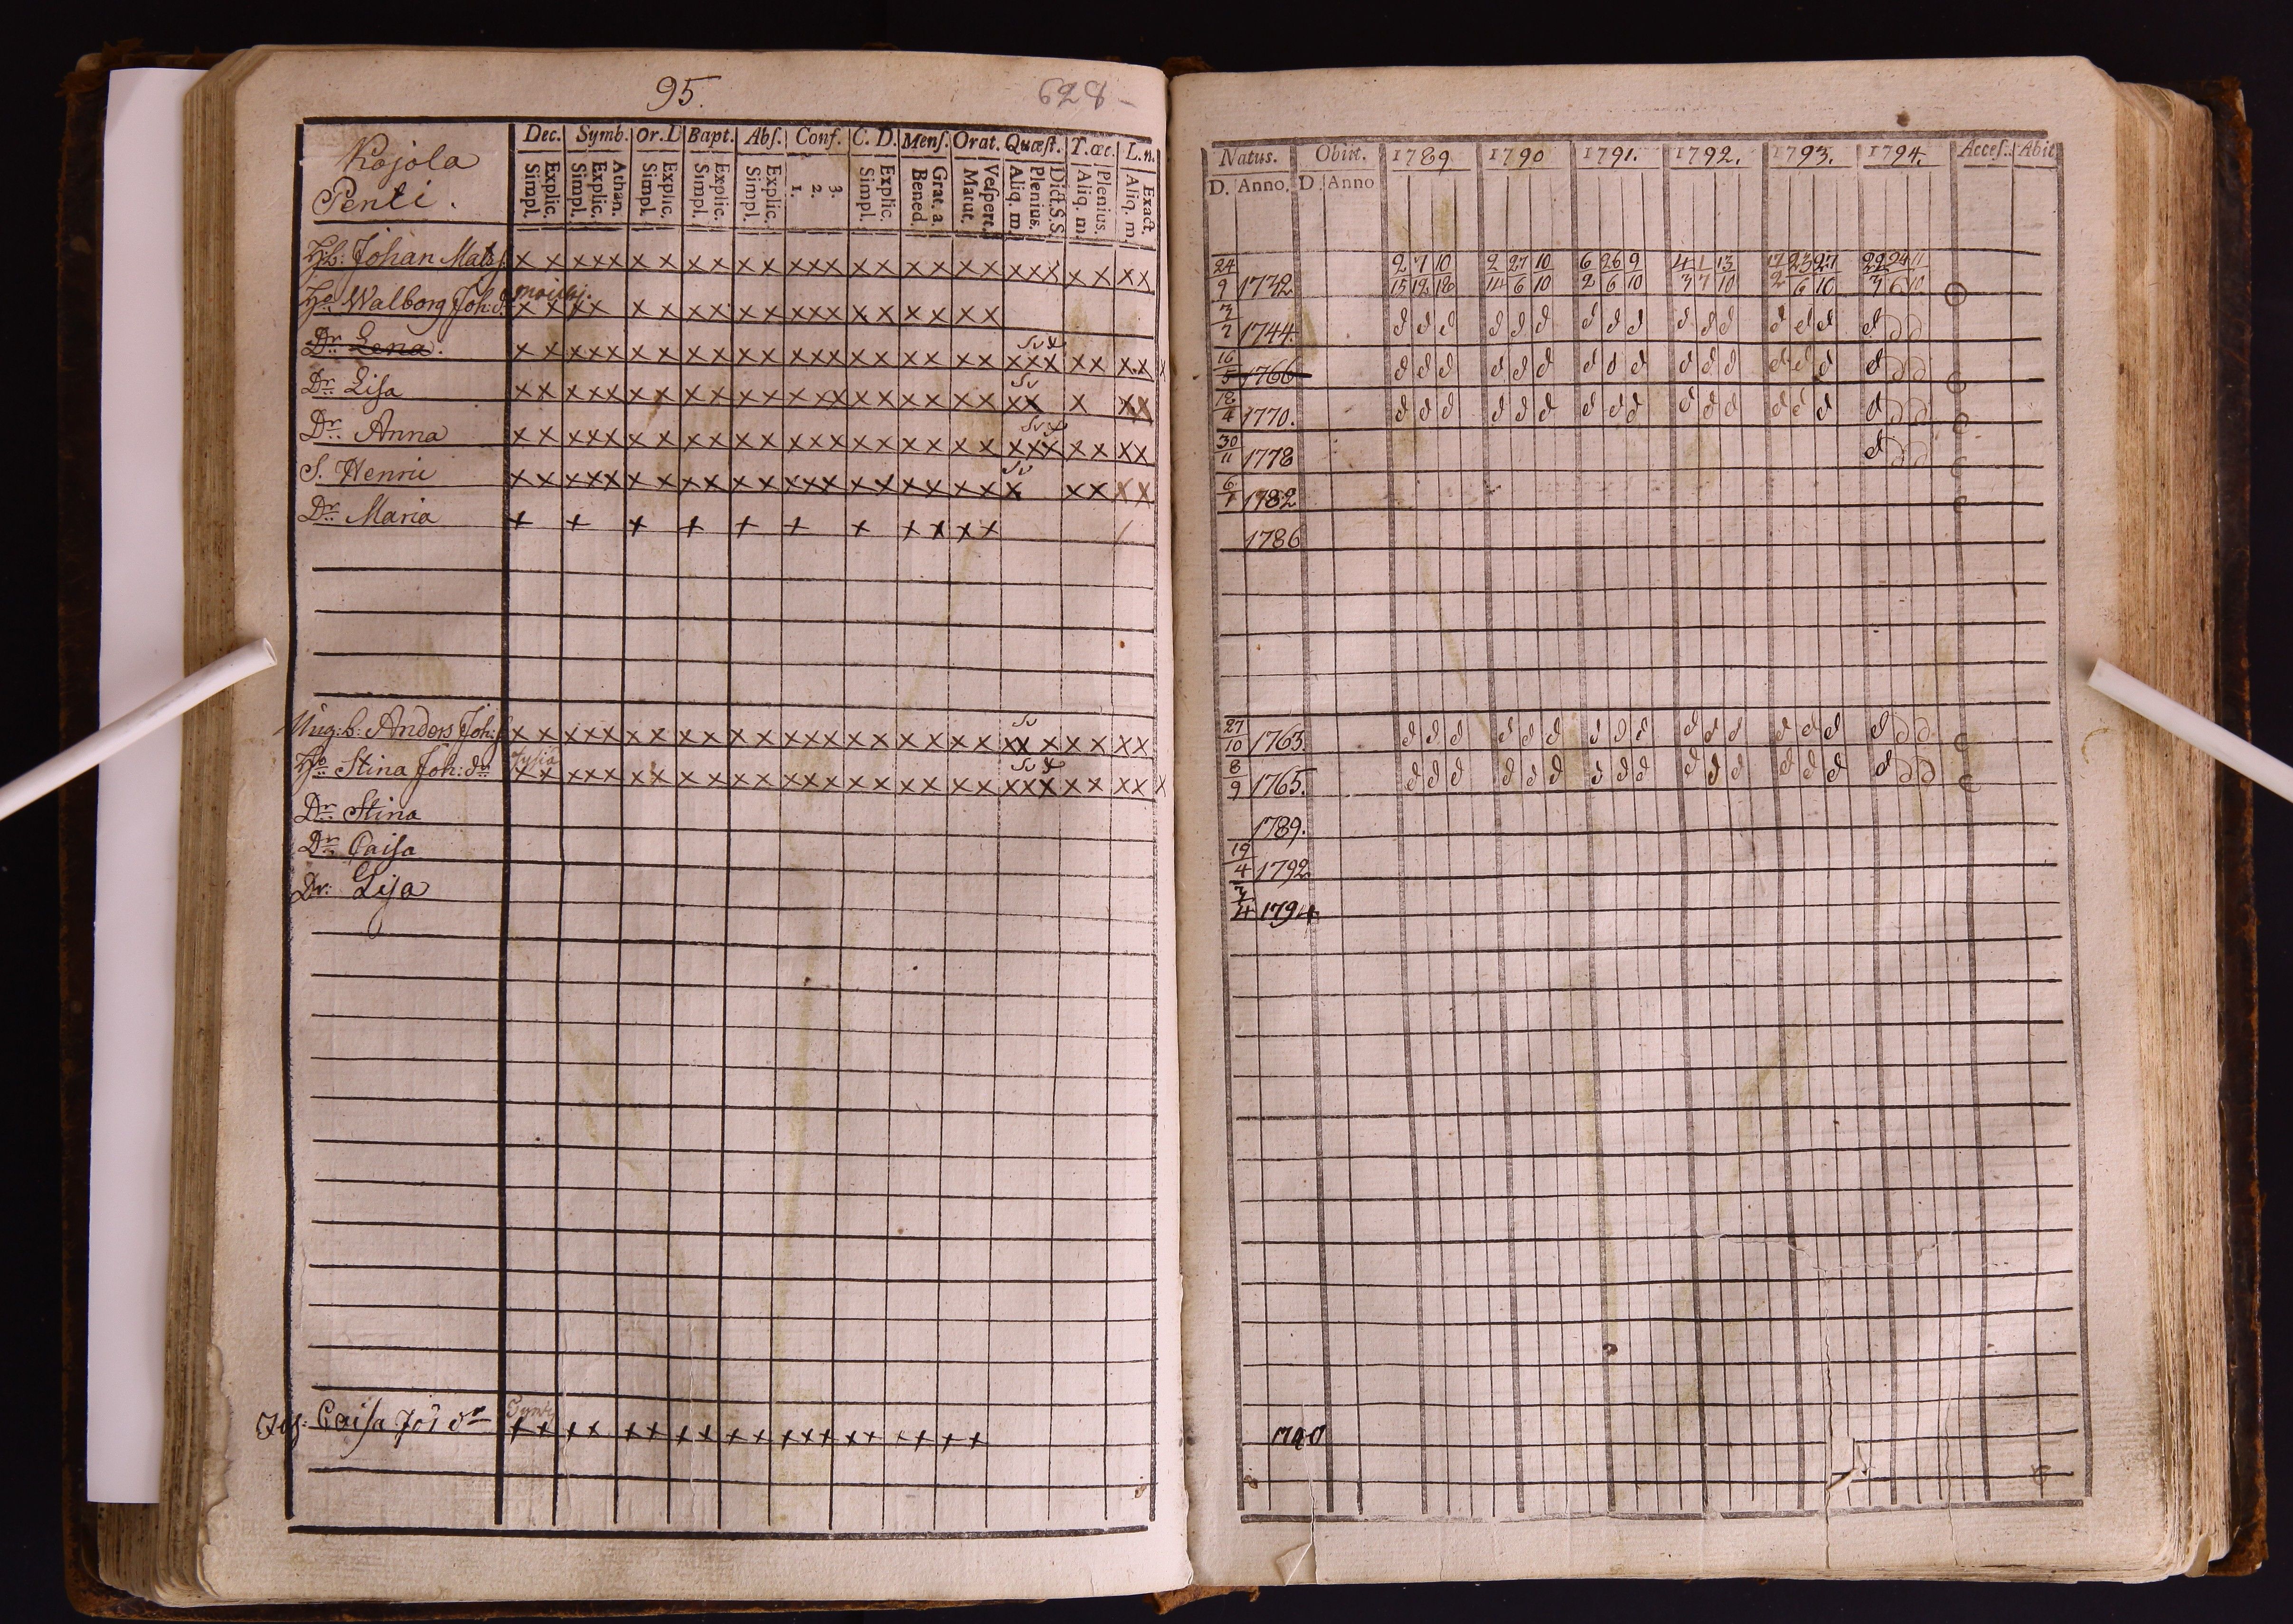 95.
628
Kojola
Penti.
Dec. Symb. Or. D Bapt. Abs. Conf. C. D. Mens. Orat. Quæst. T. œc. L. n.
Explic. Simpl. Athan. Explic. Simpl. Explic. Simpl. Explic. Simpl. Explic. Simpl. 3. 2. 1. Explic. Simpl. Grat. a. Bened. Vespert. Matut. Dict. S. S. Plenius. Aliq. m. Plenius. Aliq. m. Exact. Aliq. m.
Natus. Obiit. 1789 1790 1791. 1792. 1793. 1794. Acces. Abit
D. Anno. D. Anno
Hb: Johan Mats s. x x xxx x x x x x x xxx x x x x x x xxx x x x x
24/9 1732 2/15 7/12 10/18 2/14 27/6 10/10 6/2 26/6 9/10 4/3 1/7 13/10
Ho Walborg Joh: d. x x x x x x x x x x xxx x x x x x x
1744.
Dr. Lena. x x xxx x x x x x x xxx x x x x x x xxx x x x x
16/5 1766
Dr. Lisa x x xxx x x x x x x xxx x x x x x x x x x x x
18/4 1770.
Dr. Anna x x xxx x x x x x x xxx x x x x x x xxx x x x x
30/11 1778
S. Henric x x xxx x x x x x x xxx x x x x x x x x x x x
6/1 1782
Dr. Maria x x x x x x x x x x x
1786
Mag: b: Anders Joh: s. x x xxx x x x x x x xxx x x x x x x xx x x x x x
27/10 1763.
Ho Stina Joh: dr x x xxx x x x x x x xxx x x x x x x xxx x x x x
8/9 1765.
Dr. Stina
1789.
Dr. Caisa
19/4 1792
Dr: Lisa
7/4 1794
Caisa Joh dr x x x x x x x x x x xxx x x x x x x